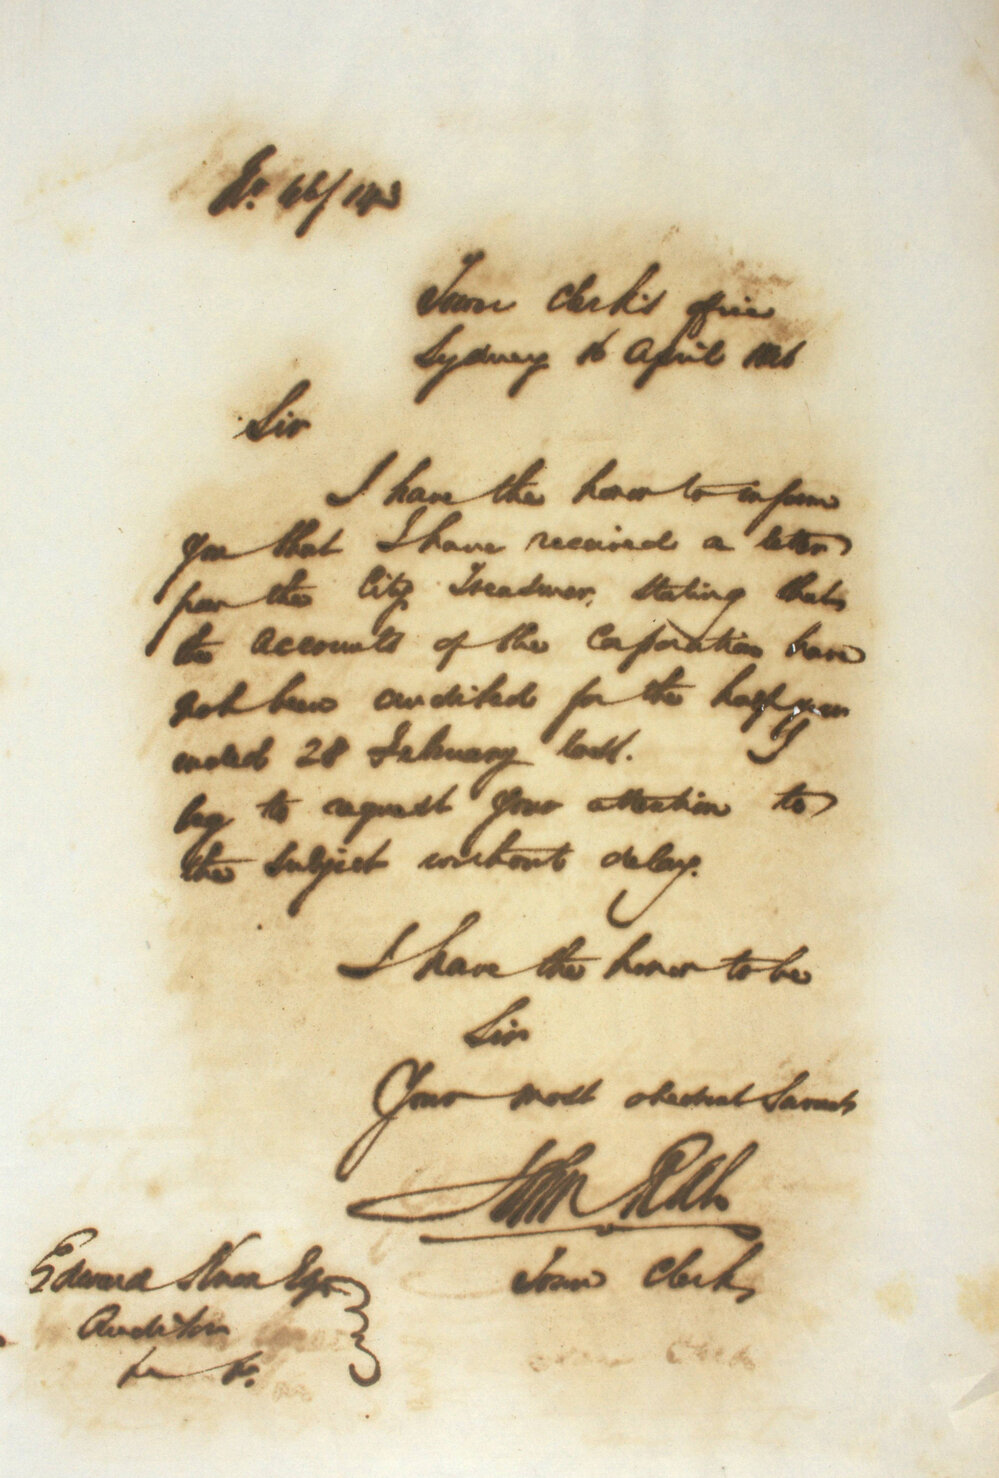 No. 46/143
Town Clerk's Office
Sydney 16 April 1846
Sir
I have the honor to inform
you that I have received a letter
from the City Treasurer, stating that
the accounts of the Corporation have
not been audited for the half year
ended 28 February last. I
beg to request your attention to
the subject without delay.
I have the honor to be
Sir
Your most obedient Servant
John
Town Clerk
Edward Esqr
Auditor